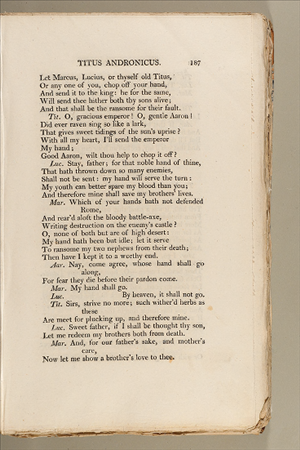 TITUS ANDRONICUS. 187
Let Marcus, Lucius, or thyself old Titus,
Or any one of you, chop off your hand,
And send it to the king: he for the same,
Will send thee hither both thy sons alive;
And that shall be the ransome for their fault.
Tit. O, gracious emperor! O, gentle Aaron!
Did ever raven sing so like a lark,
That gives sweet tidings of the sun's uprise?
With all my heart, I'll send the emperor
My hand;
Good Aaron, wilt thou help to chop it off?
Luc. Stay, father; for that noble hand of thine,
That hath thrown down so many enemies,
Shall not be sent: my hand will serve the turn:
My youth can better spare my blood than you;
And therefore mine shall save my brothers' lives.
Mar. Which of your hands hath not defended
Rome,
And rear'd aloft the bloody battle-axe,
Writing destruction on the enemy's castle?
O, none of both but are of high desert:
My hand hath been but idle; let it serve
To ransome my two nephews from their death;
Then have I kept it to a worthy end.
Aar. Nay, come agree, whose hand shall go
along,
For fear they die before their pardon come.
Mar. My hand shall go.
Luc. By heaven, it shall not go.
Tit. Sirs, strive no more; such wither'd herbs as
these
Are meet for plucking up, and therefore mine.
Luc. Sweet father, if I shall be thought thy son,
Let me redeem my brothers both from death.
Mar. And, for our father's sake, and mother's
care,
Now let me show a brother's love to thee.